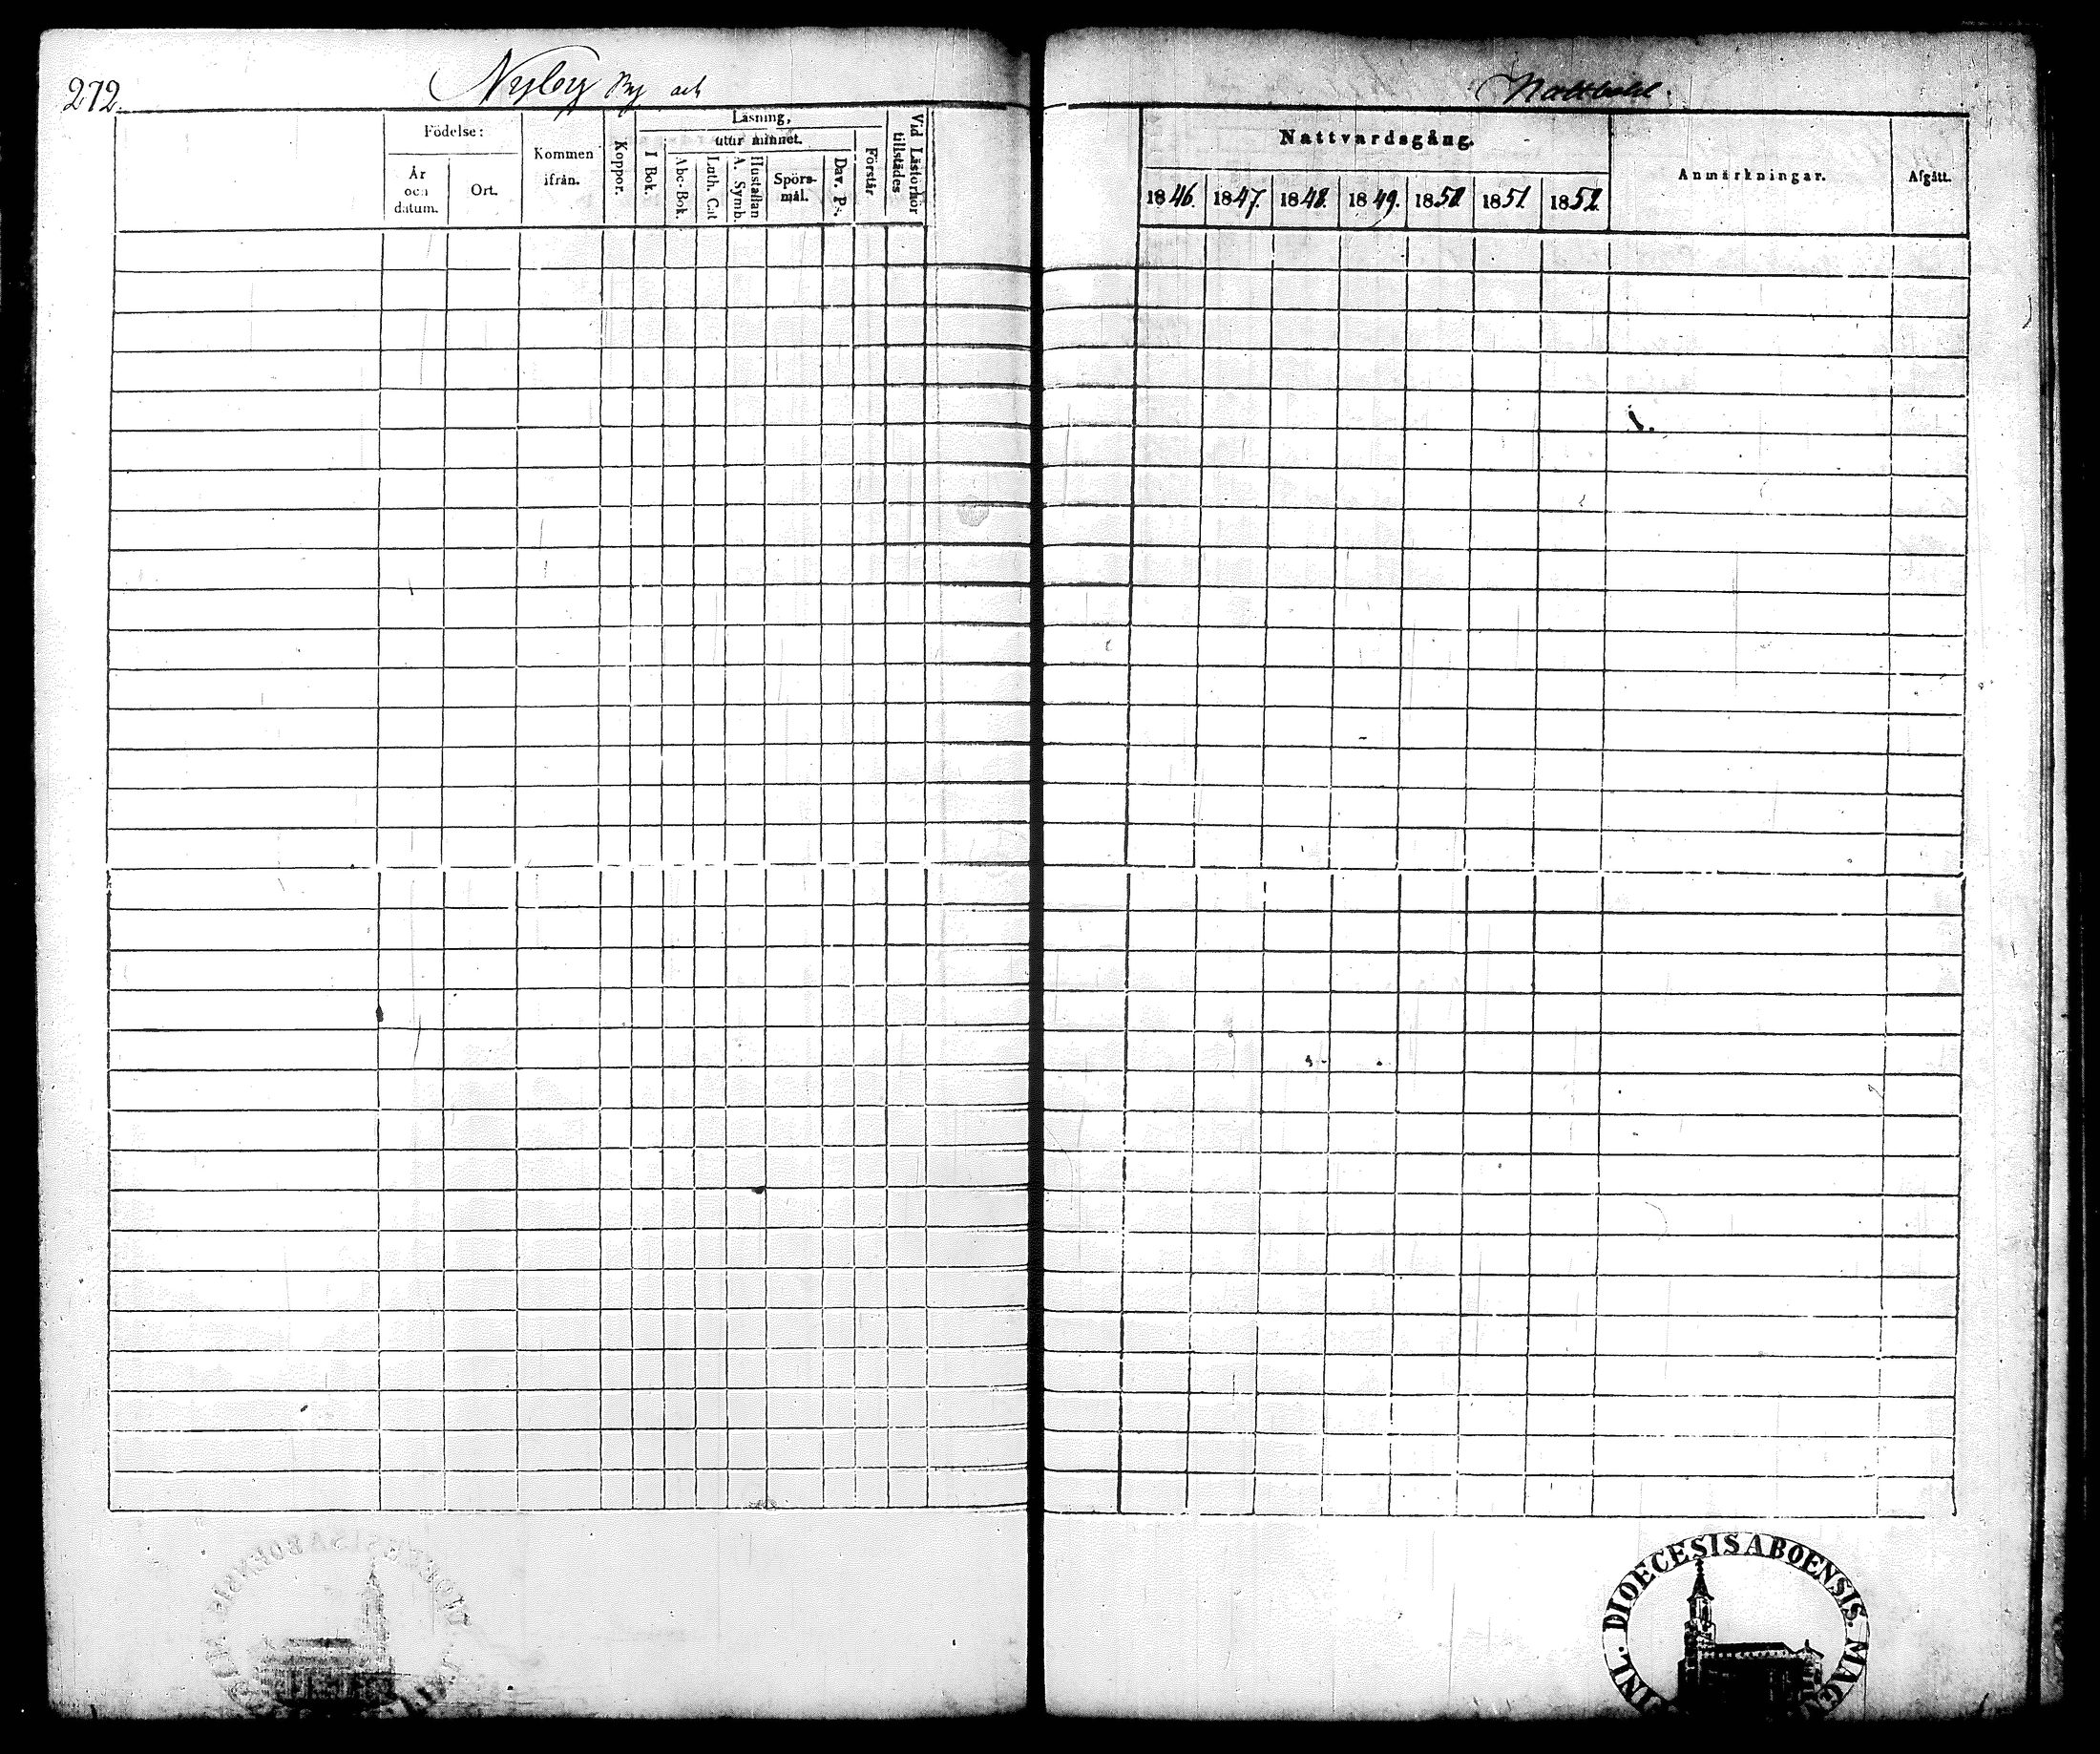 272.
Nyby By och
Födelse:
År och datum.
Ort.
Kommen ifrån.
Koppor.
Läsning,
I Bok.
utur minnet.
Abc-Bok.
Luth. Cat
A. Symb.
Hustaflan
Spörs-mål.
Dav. Ps.
Förstår.
Vid Läsförhör tillstädes
Nattvardsgång.
1846. 1847. 1848. 1849. 1850 1851 1852.
Anmärkningar.
Afgått.
DIOECESIS ABOENSIS. MAG